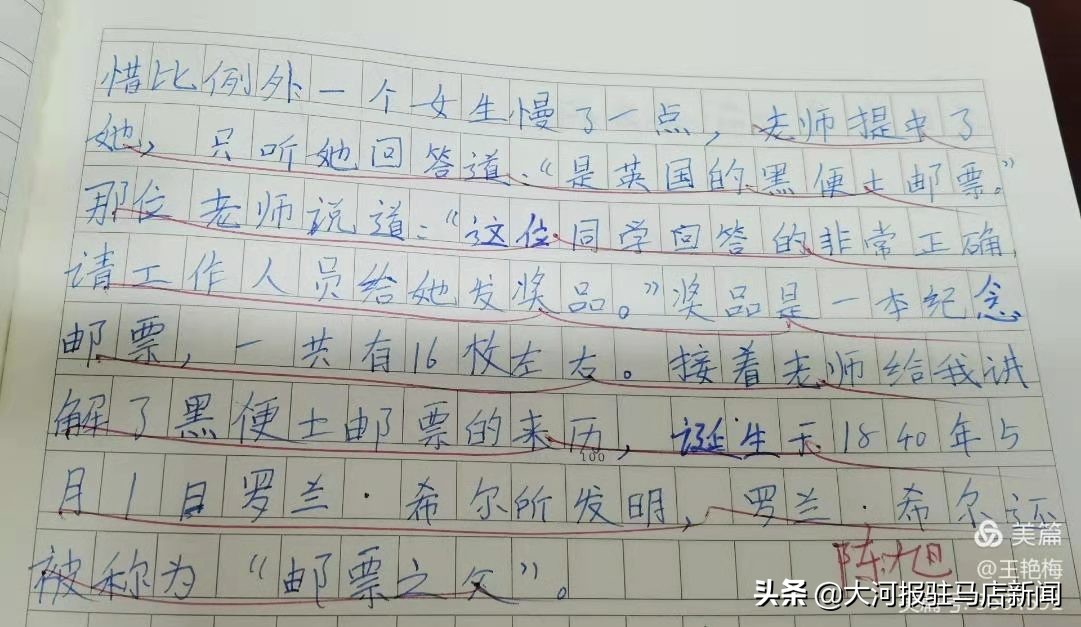 惜比例外一个女生慢了一点，老师提中了
她，只听她回答道、“是英国的黑便士邮票。”
那位老师说道：“这位同学回答的非常正确，
请工作人员给她发奖品。”奖品是一本纪念
邮票，一共有16枚左右。接着老师给我讲
解了黑便士邮票的来历，诞生于1840年5
月1日罗兰·希尔所发明，罗兰·希尔还
被称为“邮票之父”。
100
陈旭
美篇
@王艳梅
头条 @大河报驻马店新闻